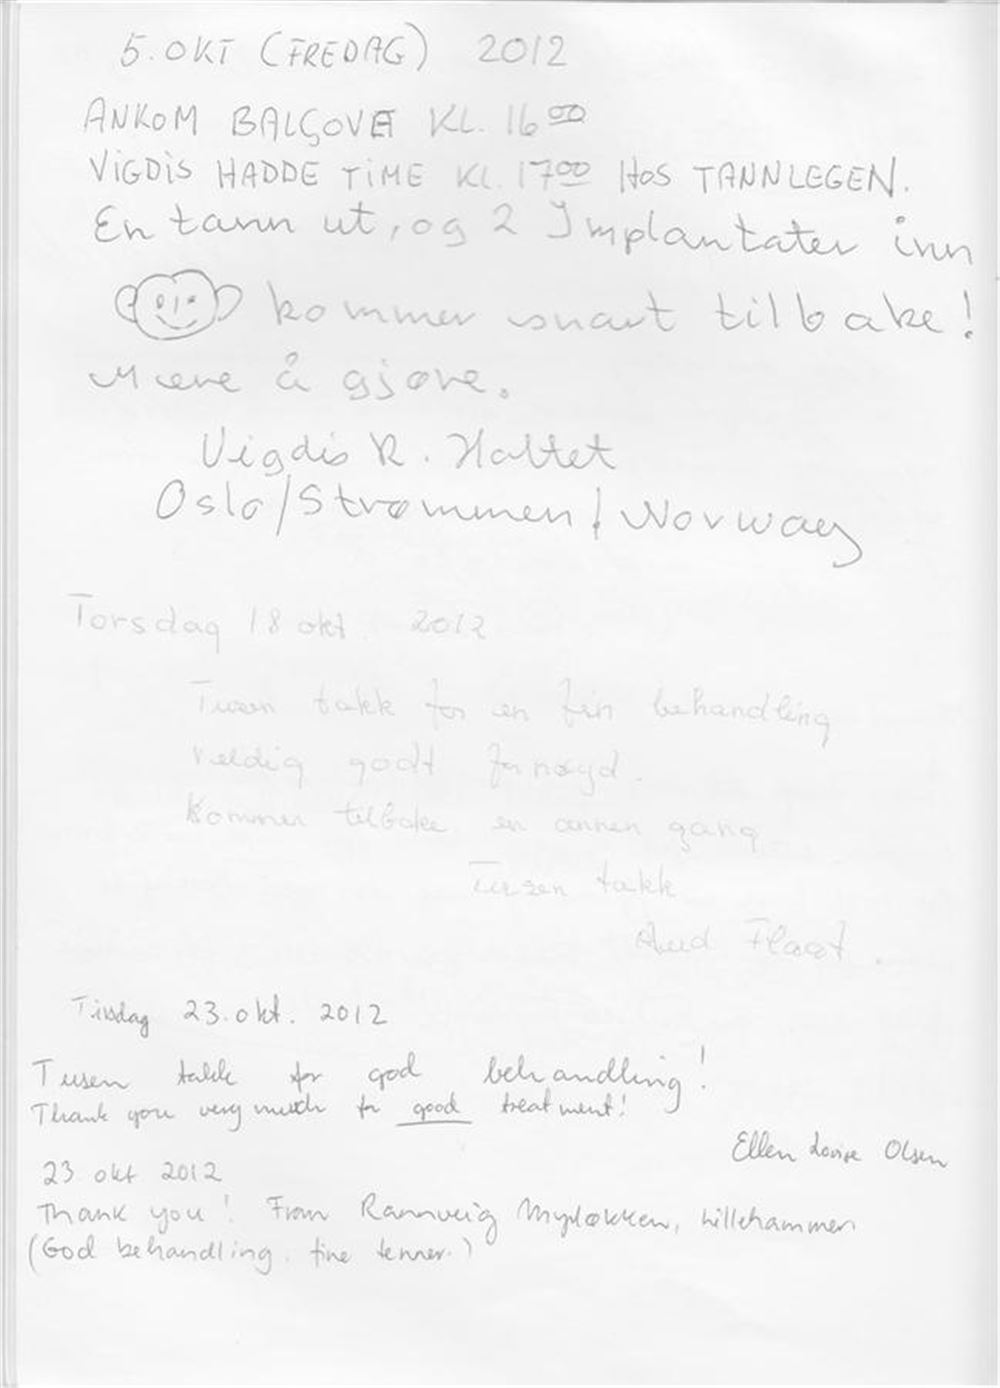 5. OKT (FREDAG) 2012
ANKOM BALÇOVA KL. 16 00
VIGDIS HADDE TIME KL. 17 00 HOS TANNLEGEN.
En tann ut, og 2 Implantater inn
kommer snart tilbake!
Mere å gjøre.
Vigdis R. Holtet
Oslo/Strømmen/Norway
Torsdag 18 okt. 2012
Tusen takk for en fin behandling
Veldig godt fornøyd.
Kommer tilbake en annen gang
Tusen takk
Aud Flaat.
Tirsdag 23. okt. 2012
Tusen takk for god behandling!
Thank you very much for good treatment!
Ellen Lovise Olsen
23 okt 2012
Thank you! From Rannveig Lillehammer
(God behandling. fine tenner.)